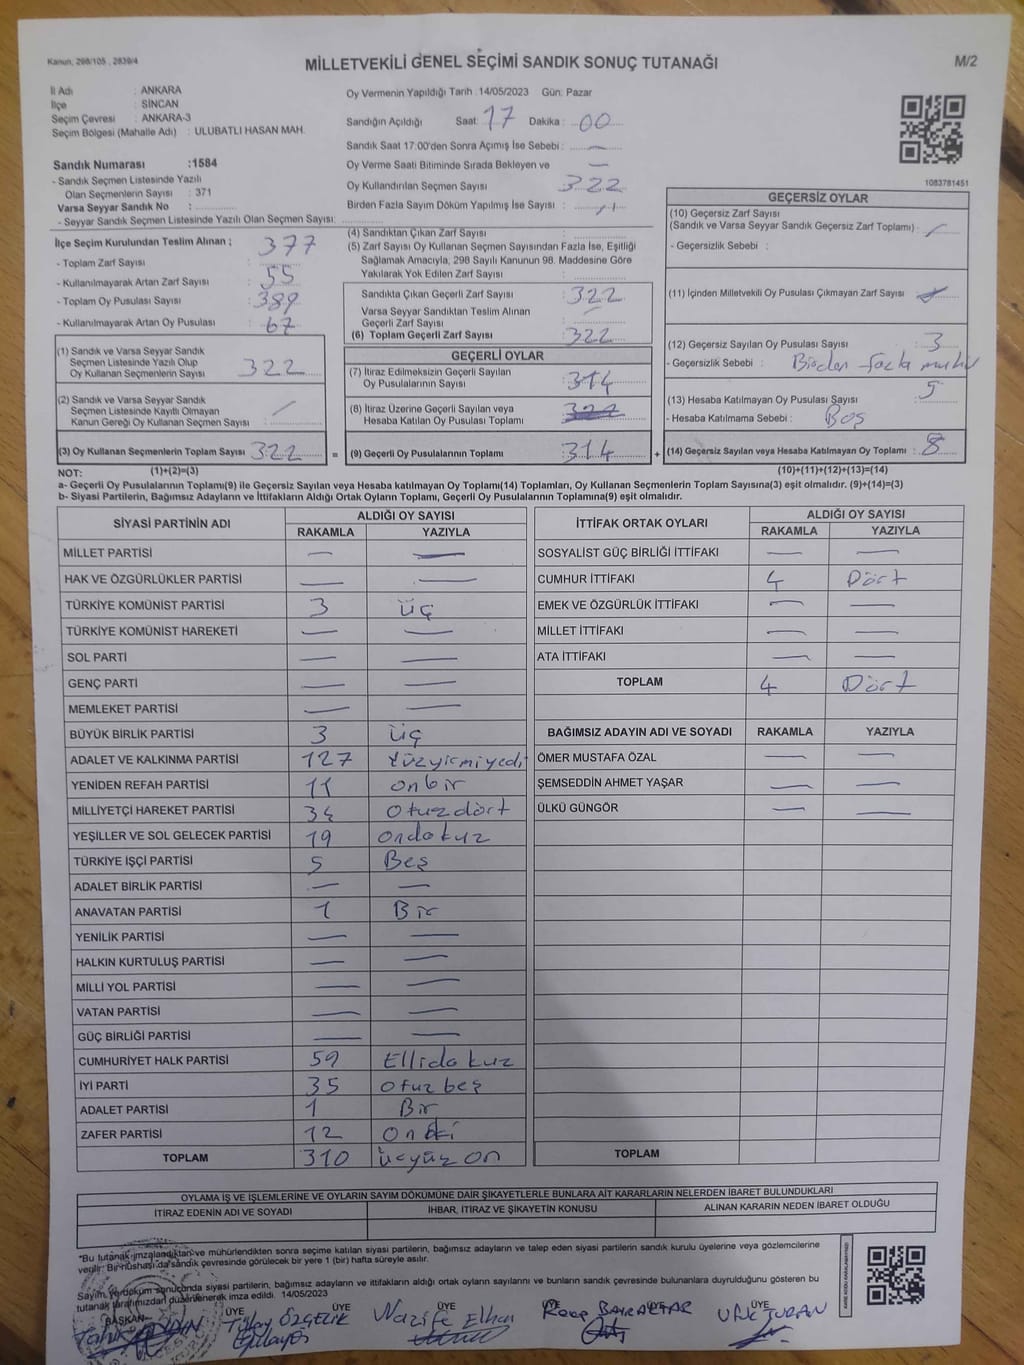 Kanun, 298/105 , 2839/4
MİLLETVEKİLİ GENEL SEÇİMİ SANDIK SONUÇ TUTANAĞI
M/2
İl Adı : ANKARA
İlçe : SİNCAN
Seçim Çevresi : ANKARA-3
Seçim Bölgesi (Mahalle Adı) : ULUBATLI HASAN MAH.
Sandık Numarası :1584
- Sandık Seçmen Listesinde Yazılı
Olan Seçmenlerin Sayısı : 371
Varsa Seyyar Sandık No :
- Seyyar Sandık Seçmen Listesinde Yazılı Olan Seçmen Sayısı:
Oy Vermenin Yapıldığı Tarih :14/05/2023 Gün: Pazar
Sandığın Açıldığı Saat: 17 Dakika : 00
Sandık Saat 17:00'den Sonra Açımış İse Sebebi : —
Oy Verme Saati Bitiminde Sırada Bekleyen ve —
Oy Kullandırılan Seçmen Sayısı 322
Birden Fazla Sayım Döküm Yapılmış İse Sayısı :
1083781451
İlçe Seçim Kurulundan Teslim Alınan ;
- Toplam Zarf Sayısı : 377
- Kullanılmayarak Artan Zarf Sayısı : 55
- Toplam Oy Pusulası Sayısı : 389
- Kullanılmayarak Artan Oy Pusulası : 67
(1) Sandık ve Varsa Seyyar Sandık
Seçmen Listesinde Yazılı Olup
Oy Kullanan Seçmenlerin Sayısı 322
(2) Sandık ve Varsa Seyyar Sandık
Seçmen Listesinde Kayıtlı Olmayan
Kanun Gereği Oy Kullanan Seçmen Sayısı :
(3) Oy Kullanan Seçmenlerin Toplam Sayısı 322
(4) Sandıktan Çıkan Zarf Sayısı :
(5) Zarf Sayısı Oy Kullanan Seçmen Sayısından Fazla İse, Eşitliği
Sağlamak Amacıyla, 298 Sayılı Kanunun 98. Maddesine Göre
Yakılarak Yok Edilen Zarf Sayısı :
Sandıkta Çıkan Geçerli Zarf Sayısı : 322
Varsa Seyyar Sandıktan Teslim Alınan
Geçerli Zarf Sayısı :
(6) Toplam Geçerli Zarf Sayısı : 322
GEÇERLİ OYLAR
(7) İtiraz Edilmeksizin Geçerli Sayılan
Oy Pusulalarının Sayısı : 314
(8) İtiraz Üzerine Geçerli Sayılan veya
Hesaba Katılan Oy Pusulası Toplamı : 322
= (9) Geçerli Oy Pusulalarının Toplamı : 314
GEÇERSİZ OYLAR
(10) Geçersiz Zarf Sayısı
(Sandık ve Varsa Seyyar Sandık Geçersiz Zarf Toplamı) :
- Geçersizlik Sebebi :
(11) İçinden Milletvekili Oy Pusulası Çıkmayan Zarf Sayısı
(12) Geçersiz Sayılan Oy Pusulası Sayısı : 3
- Geçersizlik Sebebi : Birden fazla mühür
(13) Hesaba Katılmayan Oy Pusulası Sayısı : 5
- Hesaba Katılmama Sebebi : Boş
+ (14) Geçersiz Sayılan veya Hesaba Katılmayan Oy Toplamı : 8
NOT: (1)+(2)=(3) (10)+(11)+(12)+(13)=(14)
a- Geçerli Oy Pusulalarının Toplamı(9) ile Geçersiz Sayılan veya Hesaba katılmayan Oy Toplamı(14) Toplamları, Oy Kullanan Seçmenlerin Toplam Sayısına(3) eşit olmalıdır. (9)+(14)=(3)
b- Siyasi Partilerin, Bağımsız Adayların ve İttifakların Aldığı Ortak Oyların Toplamı, Geçerli Oy Pusulalarının Toplamına(9) eşit olmalıdır.
SİYASİ PARTİNİN ADI ALDIĞI OY SAYISI
RAKAMLA YAZIYLA
MİLLET PARTİSİ — —
HAK VE ÖZGÜRLÜKLER PARTİSİ — —
TÜRKİYE KOMÜNİST PARTİSİ 3 üç
TÜRKİYE KOMÜNİST HAREKETİ — —
SOL PARTİ — —
GENÇ PARTİ — —
MEMLEKET PARTİSİ — —
BÜYÜK BİRLİK PARTİSİ 3 üç
ADALET VE KALKINMA PARTİSİ 127 Yüzyirmiyedi
YENİDEN REFAH PARTİSİ 11 onbir
MİLLİYETÇİ HAREKET PARTİSİ 34 Otuzdört
YEŞİLLER VE SOL GELECEK PARTİSİ 19 ondokuz
TÜRKİYE İŞÇİ PARTİSİ 5 Beş
ADALET BİRLİK PARTİSİ — —
ANAVATAN PARTİSİ 1 Bir
YENİLİK PARTİSİ — —
HALKIN KURTULUŞ PARTİSİ — —
MİLLİ YOL PARTİSİ — —
VATAN PARTİSİ — —
GÜÇ BİRLİĞİ PARTİSİ — —
CUMHURİYET HALK PARTİSİ 59 Ellidokuz
İYİ PARTİ 35 otuz beş
ADALET PARTİSİ 1 Bir
ZAFER PARTİSİ 12 Oniki
TOPLAM 310 üçyüz on
İTTİFAK ORTAK OYLARI ALDIĞI OY SAYISI
RAKAMLA YAZIYLA
SOSYALİST GÜÇ BİRLİĞİ İTTİFAKI — —
CUMHUR İTTİFAKI 4 Dört
EMEK VE ÖZGÜRLÜK İTTİFAKI — —
MİLLET İTTİFAKI — —
ATA İTTİFAKI — —
TOPLAM 4 Dört
BAĞIMSIZ ADAYIN ADI VE SOYADI RAKAMLA YAZIYLA
ÖMER MUSTAFA ÖZAL — —
ŞEMSEDDİN AHMET YAŞAR — —
ÜLKÜ GÜNGÖR — —
TOPLAM
OYLAMA İŞ VE İŞLEMLERİNE VE OYLARIN SAYIM DÖKÜMÜNE DAİR ŞİKAYETLERLE BUNLARA AİT KARARLARIN NELERDEN İBARET BULUNDUKLARI
İTİRAZ EDENİN ADI VE SOYADI İHBAR, İTİRAZ VE ŞİKAYETİN KONUSU ALINAN KARARIN NEDEN İBARET OLDUĞU
"Bu tutanak imzalandıktan ve mühürlendikten sonra seçime katılan siyasi partilerin, bağımsız adayların ve talep eden siyasi partilerin sandık kurulu üyelerine veya gözlemcilerine
verilir. Bir nüshası da sandık çevresinde görülecek bir yere 1 (bir) hafta süreyle asılır.
Sayım ve döküm sonucunda siyasi partilerin, bağımsız adayların ve ittifakların aldığı ortak oyların sayılarını ve bunların sandık çevresinde bulunanlara duyrulduğunu gösteren bu
tutanak tarafımızdan düzenlenerek imza edildi. 14/05/2023
BAŞKAN ÜYE ÜYE ÜYE ÜYE ÜYE
Tülay ÖZÇELİK Nazife Elhan Recep BAYRAKTAR Ufuk TURAN